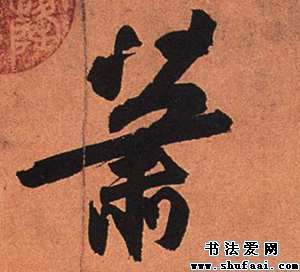 蕭
书法爱网
www.shufaai.com